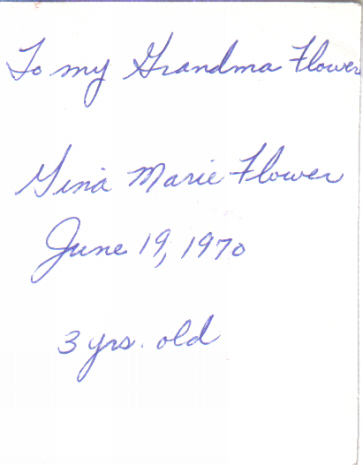 To my Grandma Flower
Gina Marie Flower
June 19, 1970
3 yrs. old